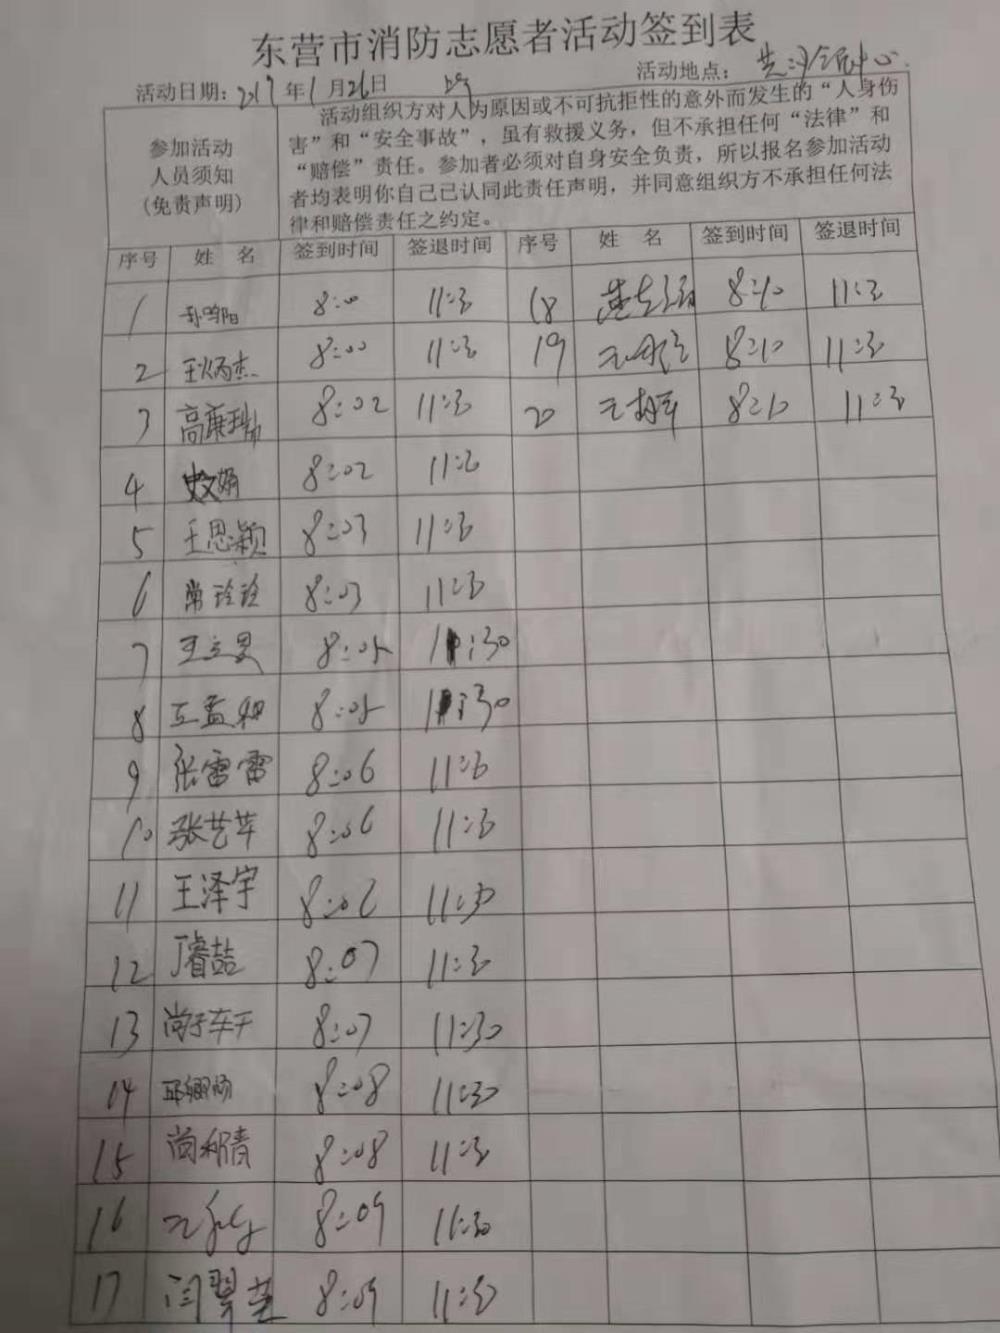 东营市消防志愿者活动签到表
活动日期: 年1月26日 活动地点:
参加活动
人员须知
(免责声明)
活动组织方对人为原因或不可抗拒性的意外而发生的“人身伤
害”和“安全事故”，虽有救援义务，但不承担任何“法律”和
“赔偿”责任。参加者必须对自身安全负责，所以报名参加活动
者均表明你自己己认同此责任声明，并同意组织方不承担任何法
律和赔偿责任之约定。
序号 姓 名 签到时间 签退时间 序号 姓 名 签到时间 签退时间
1 8:00 11:30 18 8:10 11:30
2 王炳杰 8:00 11:30 19 8:10 11:30
3 高康瑞 8:02 11:30 20 8:10 11:30
4 史文娟 8:02 11:30
5 王思颖 8:03 11:30
6 常玲玲 8:03 11:30
7 8:05 11:30
8 8:05 11:30
9 张雷雷 8:06 11:30
10 张艺苹 8:06 11:30
11 王泽宇 8:06 11:30
12 丁睿喆 8:07 11:30
13 8:07 11:30
14 8:08 11:30
15 8:08 11:30
16 8:09 11:30
17 8:09 11:30